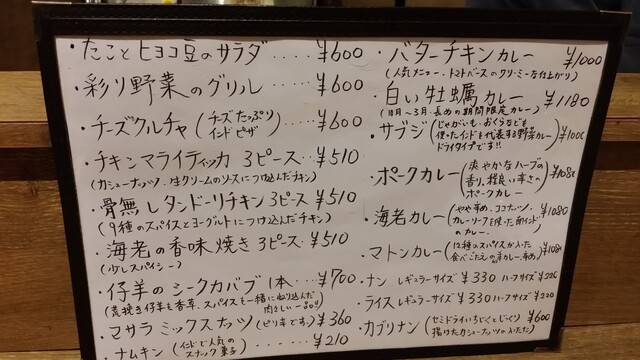 ・たことヒヨコ豆のサラダ....¥600
・彩り野菜のグリル....¥600
・チーズクルチャ(チーズたっぷり インドピザ)....¥600
・チキンマライティッカ 3ピース..¥510
(カシューナッツ、生クリームのソースにつけ込んだチキン)
・骨無しタンドーリチキン3ピース ¥510
(9種のスパイスとヨーグルトにつけ込んだチキン)
・海老の香味焼き3ピース.¥510
(少しスパイシー)
・仔羊のシークカバブ1本...¥700
(荒挽き仔羊を香草、スパイスを一緒にねり込んだ
肉々しい一品!!)
・マサラミックスナッツ(ピリキです)¥360
・ナムキン(インドで人気の スナック菓子)....¥210
・バターチキンカレー ¥1000
(人気メニュー・トマトベースのクリーミーな仕上がり)
・白い牡蠣カレー...¥1180
(10月~3月.長めの期間限定カレー)
・サブジ(じゃがいも、おくらなどを
使ったインドを代表する野菜カレー
ドライタイプです!!)
・ポークカレー(爽やかなハーブの
香り、程良い辛さの
ポークカレー)
・海老カレー(やや辛め、ココナッツ、 ¥1080
カレーリーフを使った南インド
のカレー.)
・マトンカレー(12種のスパイスが入った
食べごたえの カレー.辛め)
・ナン レギュラーサイズ ¥330 ハーフサイズ ¥220
・ライス レギュラーサイズ ¥330 ハーフサイズ ¥220
・カブリナン(セミドライいちじくとざくろ) ¥600
揚げたカシューナッツの入った)